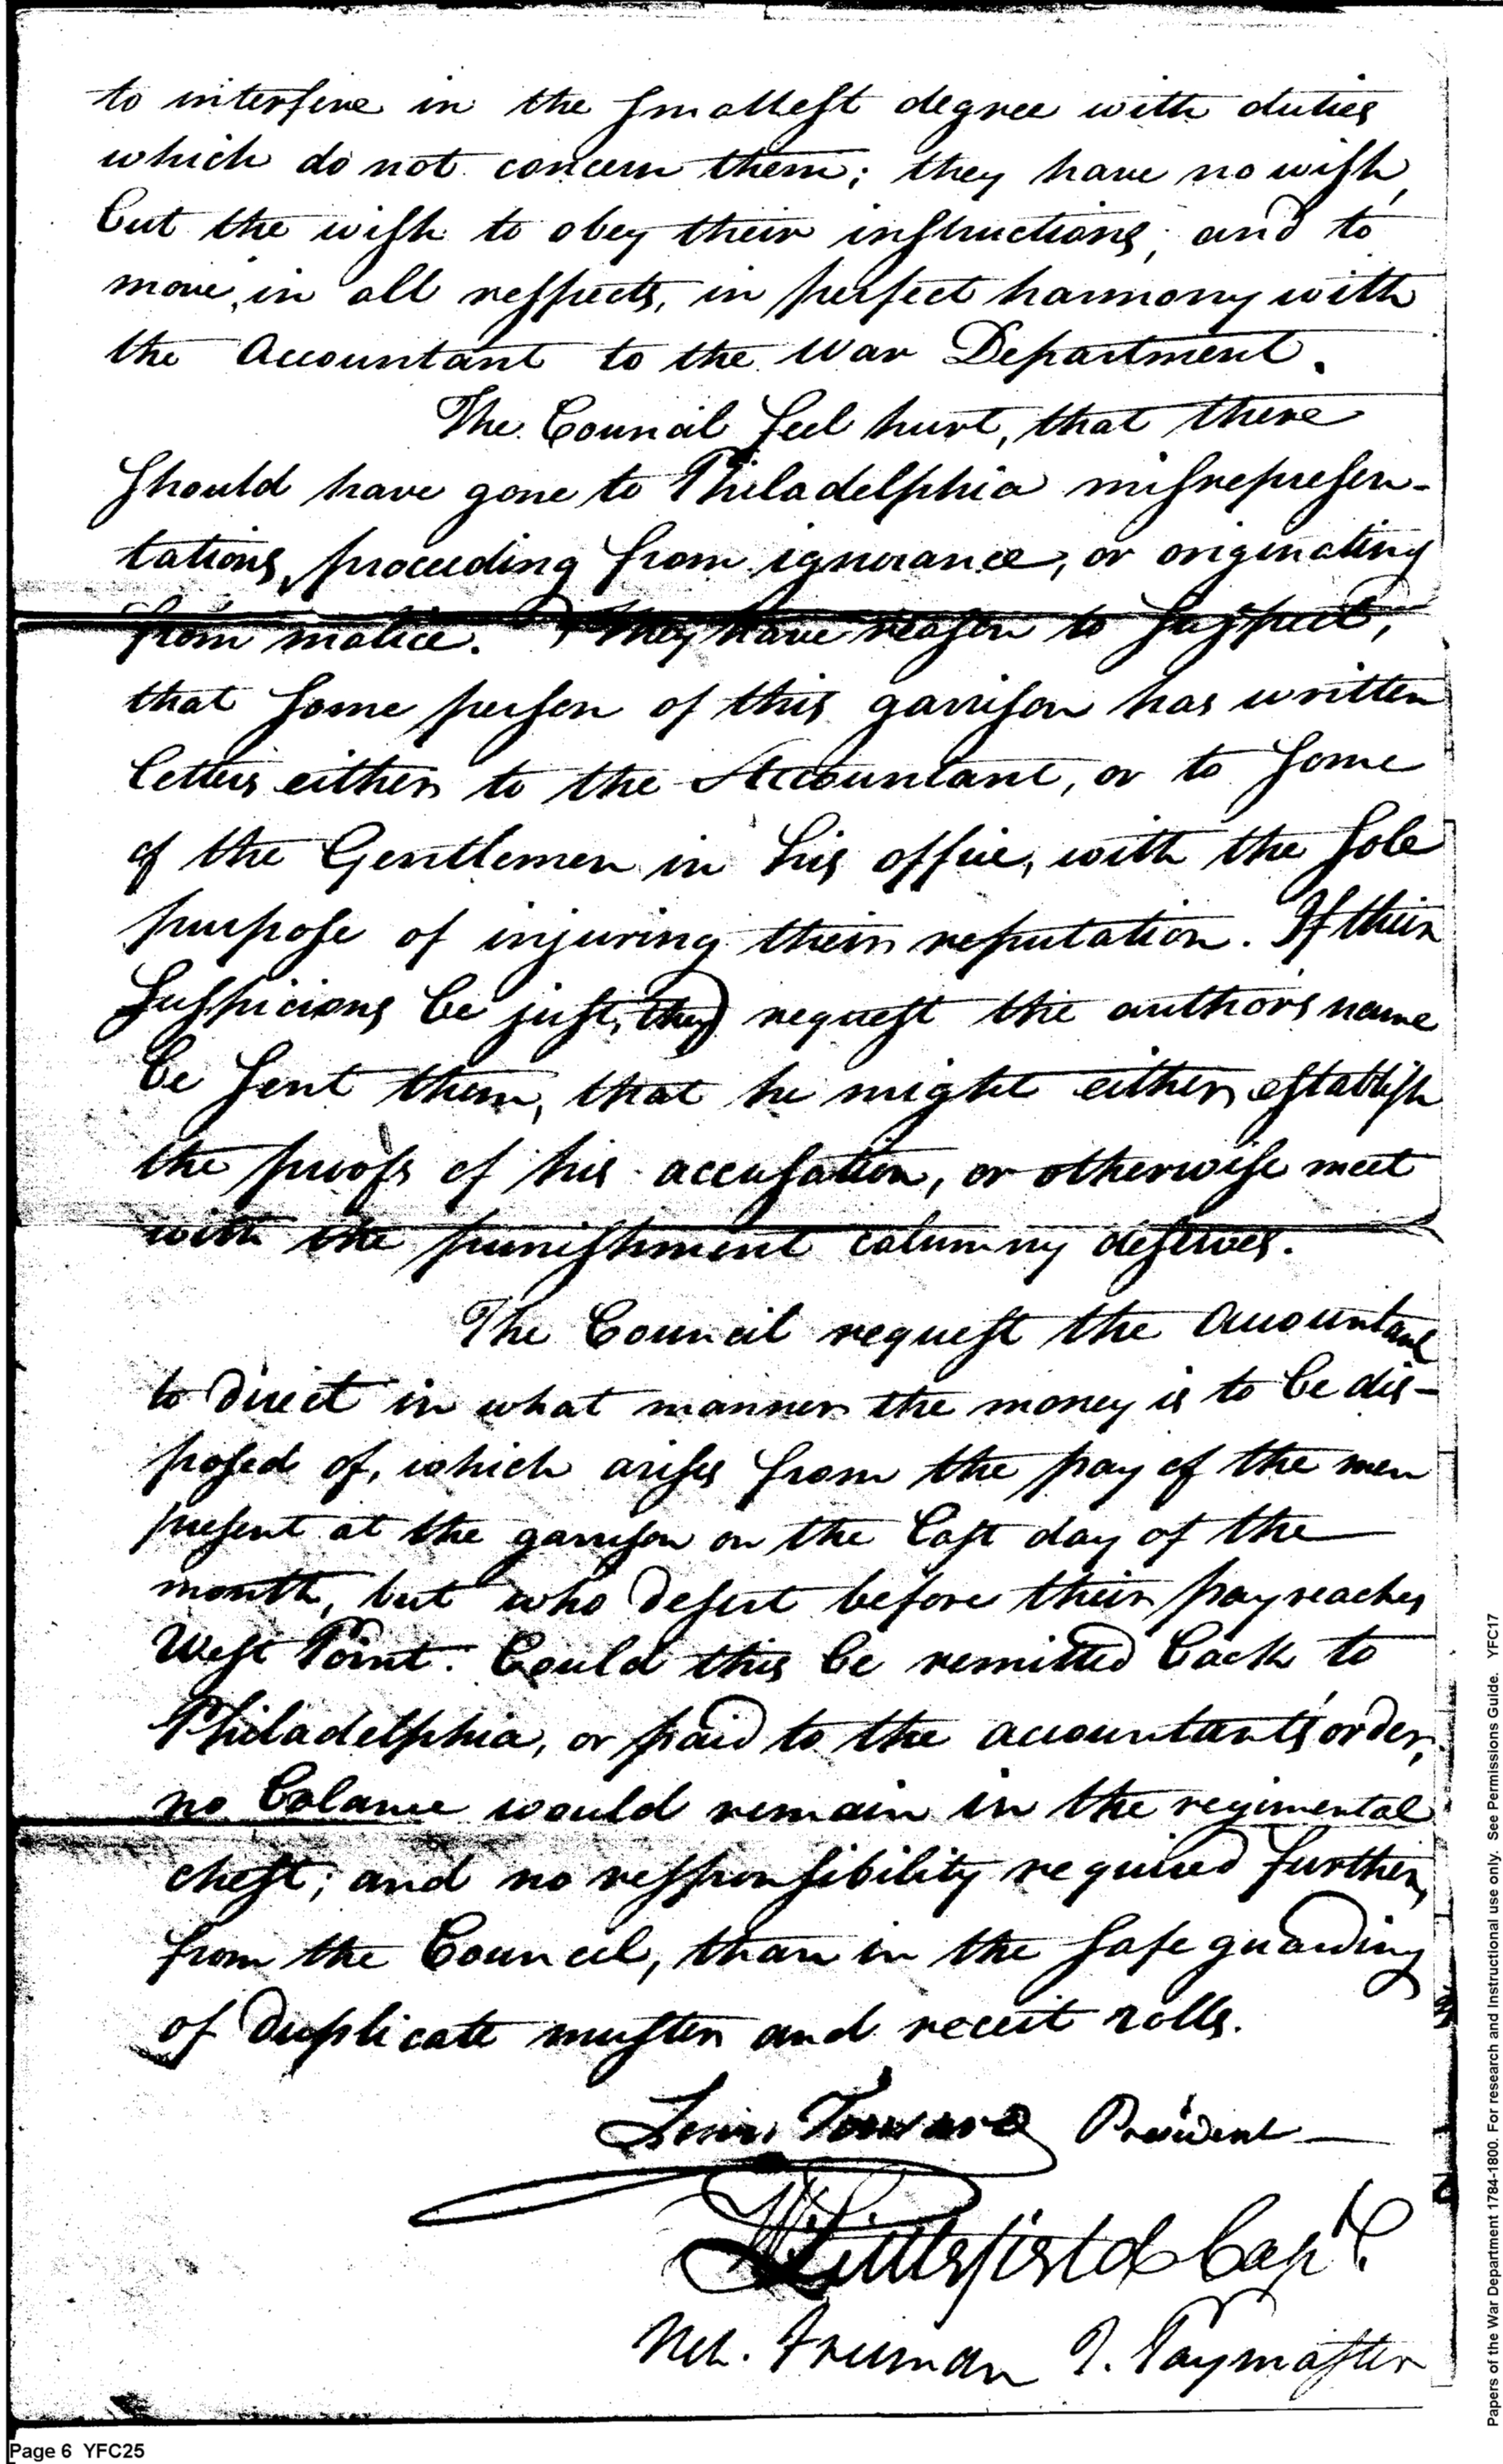 to interfere in the smallest degree with duties
which do not concern them; they have no wish,
but the wish to obey their instructions, and to
move, in all respects, in perfect harmony with
the Accountant to the War Department.
The Council feel hurt, that there
should have gone to Philadelphia misrepresen-
tations, proceeding from ignorance, or originating
from malice. They have reason to suspect,
that some person of this garrison has written
letters either to the Accountant, or to some
of the Gentlemen in his office, with the sole
purpose of injuring their reputation. If their
suspicions be just, they request the authors name
be sent them, that he might either establish
the proofs of his accusation, or otherwise meet
with the punishment calumny deserves.
The Council request the Accountant
to direct in what manner the money is to be dis-
posed of, which arises from the pay of the men
present at the garrison on the last day of the
month, but who desert before their pay reaches
West Point. Could this be remitted back to
Philadelphia, or paid to the accountant's order,
no balance would remain in the regimental
chest; and no responsibility required further,
from the Council, than in the safe guarding
of duplicate muster and receit rolls.
Louis Tousard President
W Littlefield Capt.
Neh. Freeman P. Paymaster
Page 6 YFC25
Papers of the War Department 1784-1800. For research and Instructional use only. See Permissions Guide. YFC17